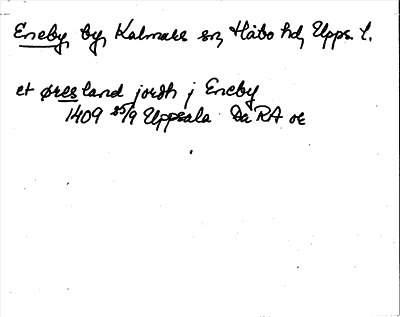 Eneby, by, Kalmars sn, Håbo hd, Upps. l.
et øresland jordh j Eneby
1409 25/9 Uppsala Da RA or